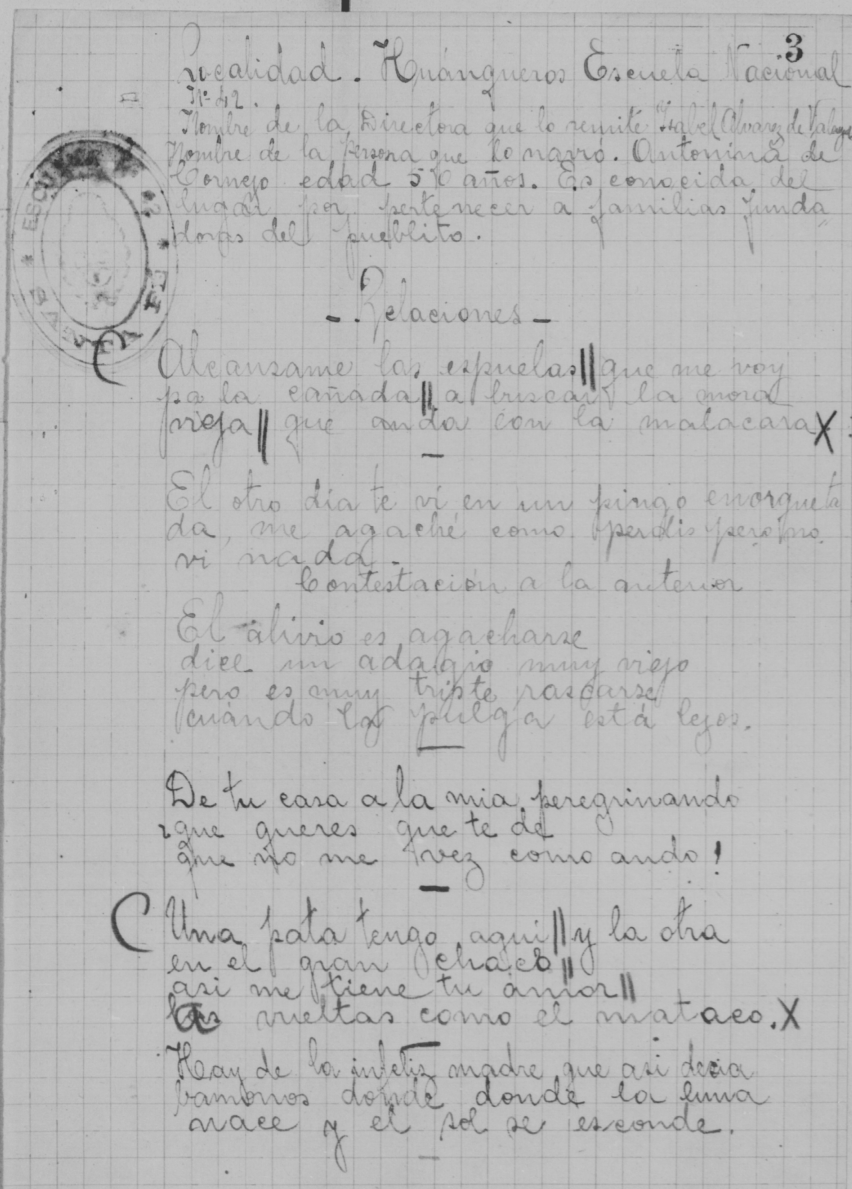 3
Localidad. Huanqueros Escuela Nacional
Nº 42.
Nombre de la Directora que lo remite Isabel Alvarez de
Nombre de la persona que lo narró. Antonina de
Cornejo edad 50 años. Es conocida del
lugar por pertenecer a familias funda
doras del pueblito.
- Relaciones -
( Alcansame las espuelas || que me voy
pa la cañada || a buscar la mora
vieja || que anda con la malacara X
El otro día te ví en un pingo enorqueta
da, me agaché como perdis pero no
vi nada.
Contestación a la anterior
El alivio es agacharse
dice un adagio muy viejo
pero es muy triste rascarse
cuándo la pulga está lejos.
De tu casa a la mia peregrinando
¿que queres que te de
que no me vez como ando!
( Una pata tengo aquí || y la otra
en el gran chaco ||
asi me tiene tu amor ||
a vueltas como el mataco. X
Hay de la infeliz madre que asi decia
bamonos donde donde la luna
nace y el sol se esconde.